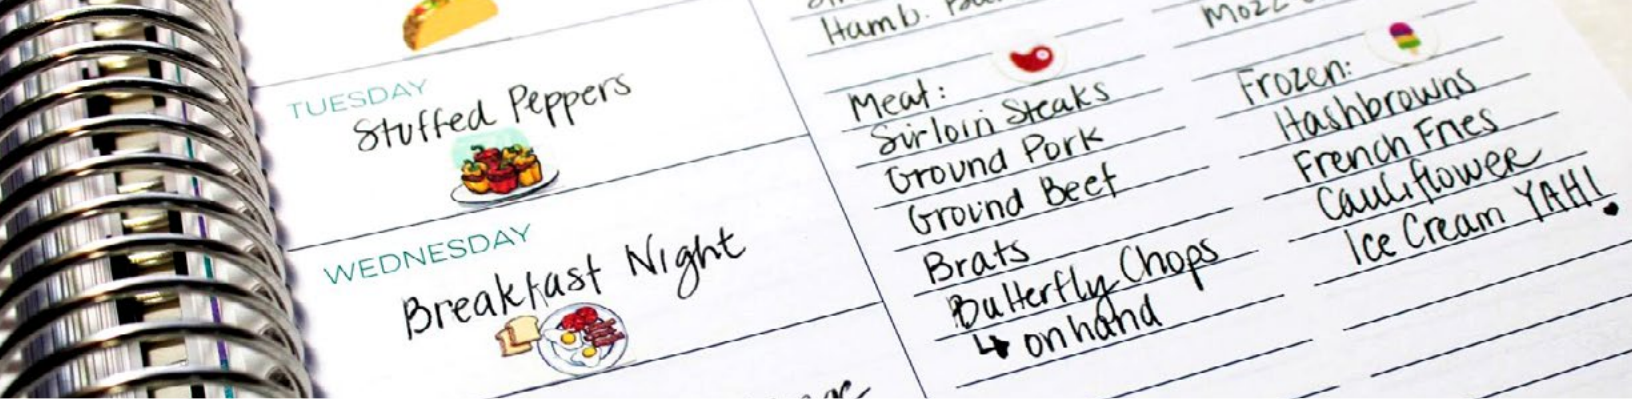 TUESDAY
Stuffed Peppers
WEDNESDAY
Breakfast Night
Hamb.
Meat:
Sirloin Steaks
Ground Pork
Ground Beef
Brats
Butterfly Chops
↳ on hand
Mozz
Frozen:
Hashbrowns
French Fries
Cauliflower
Ice Cream YAH!